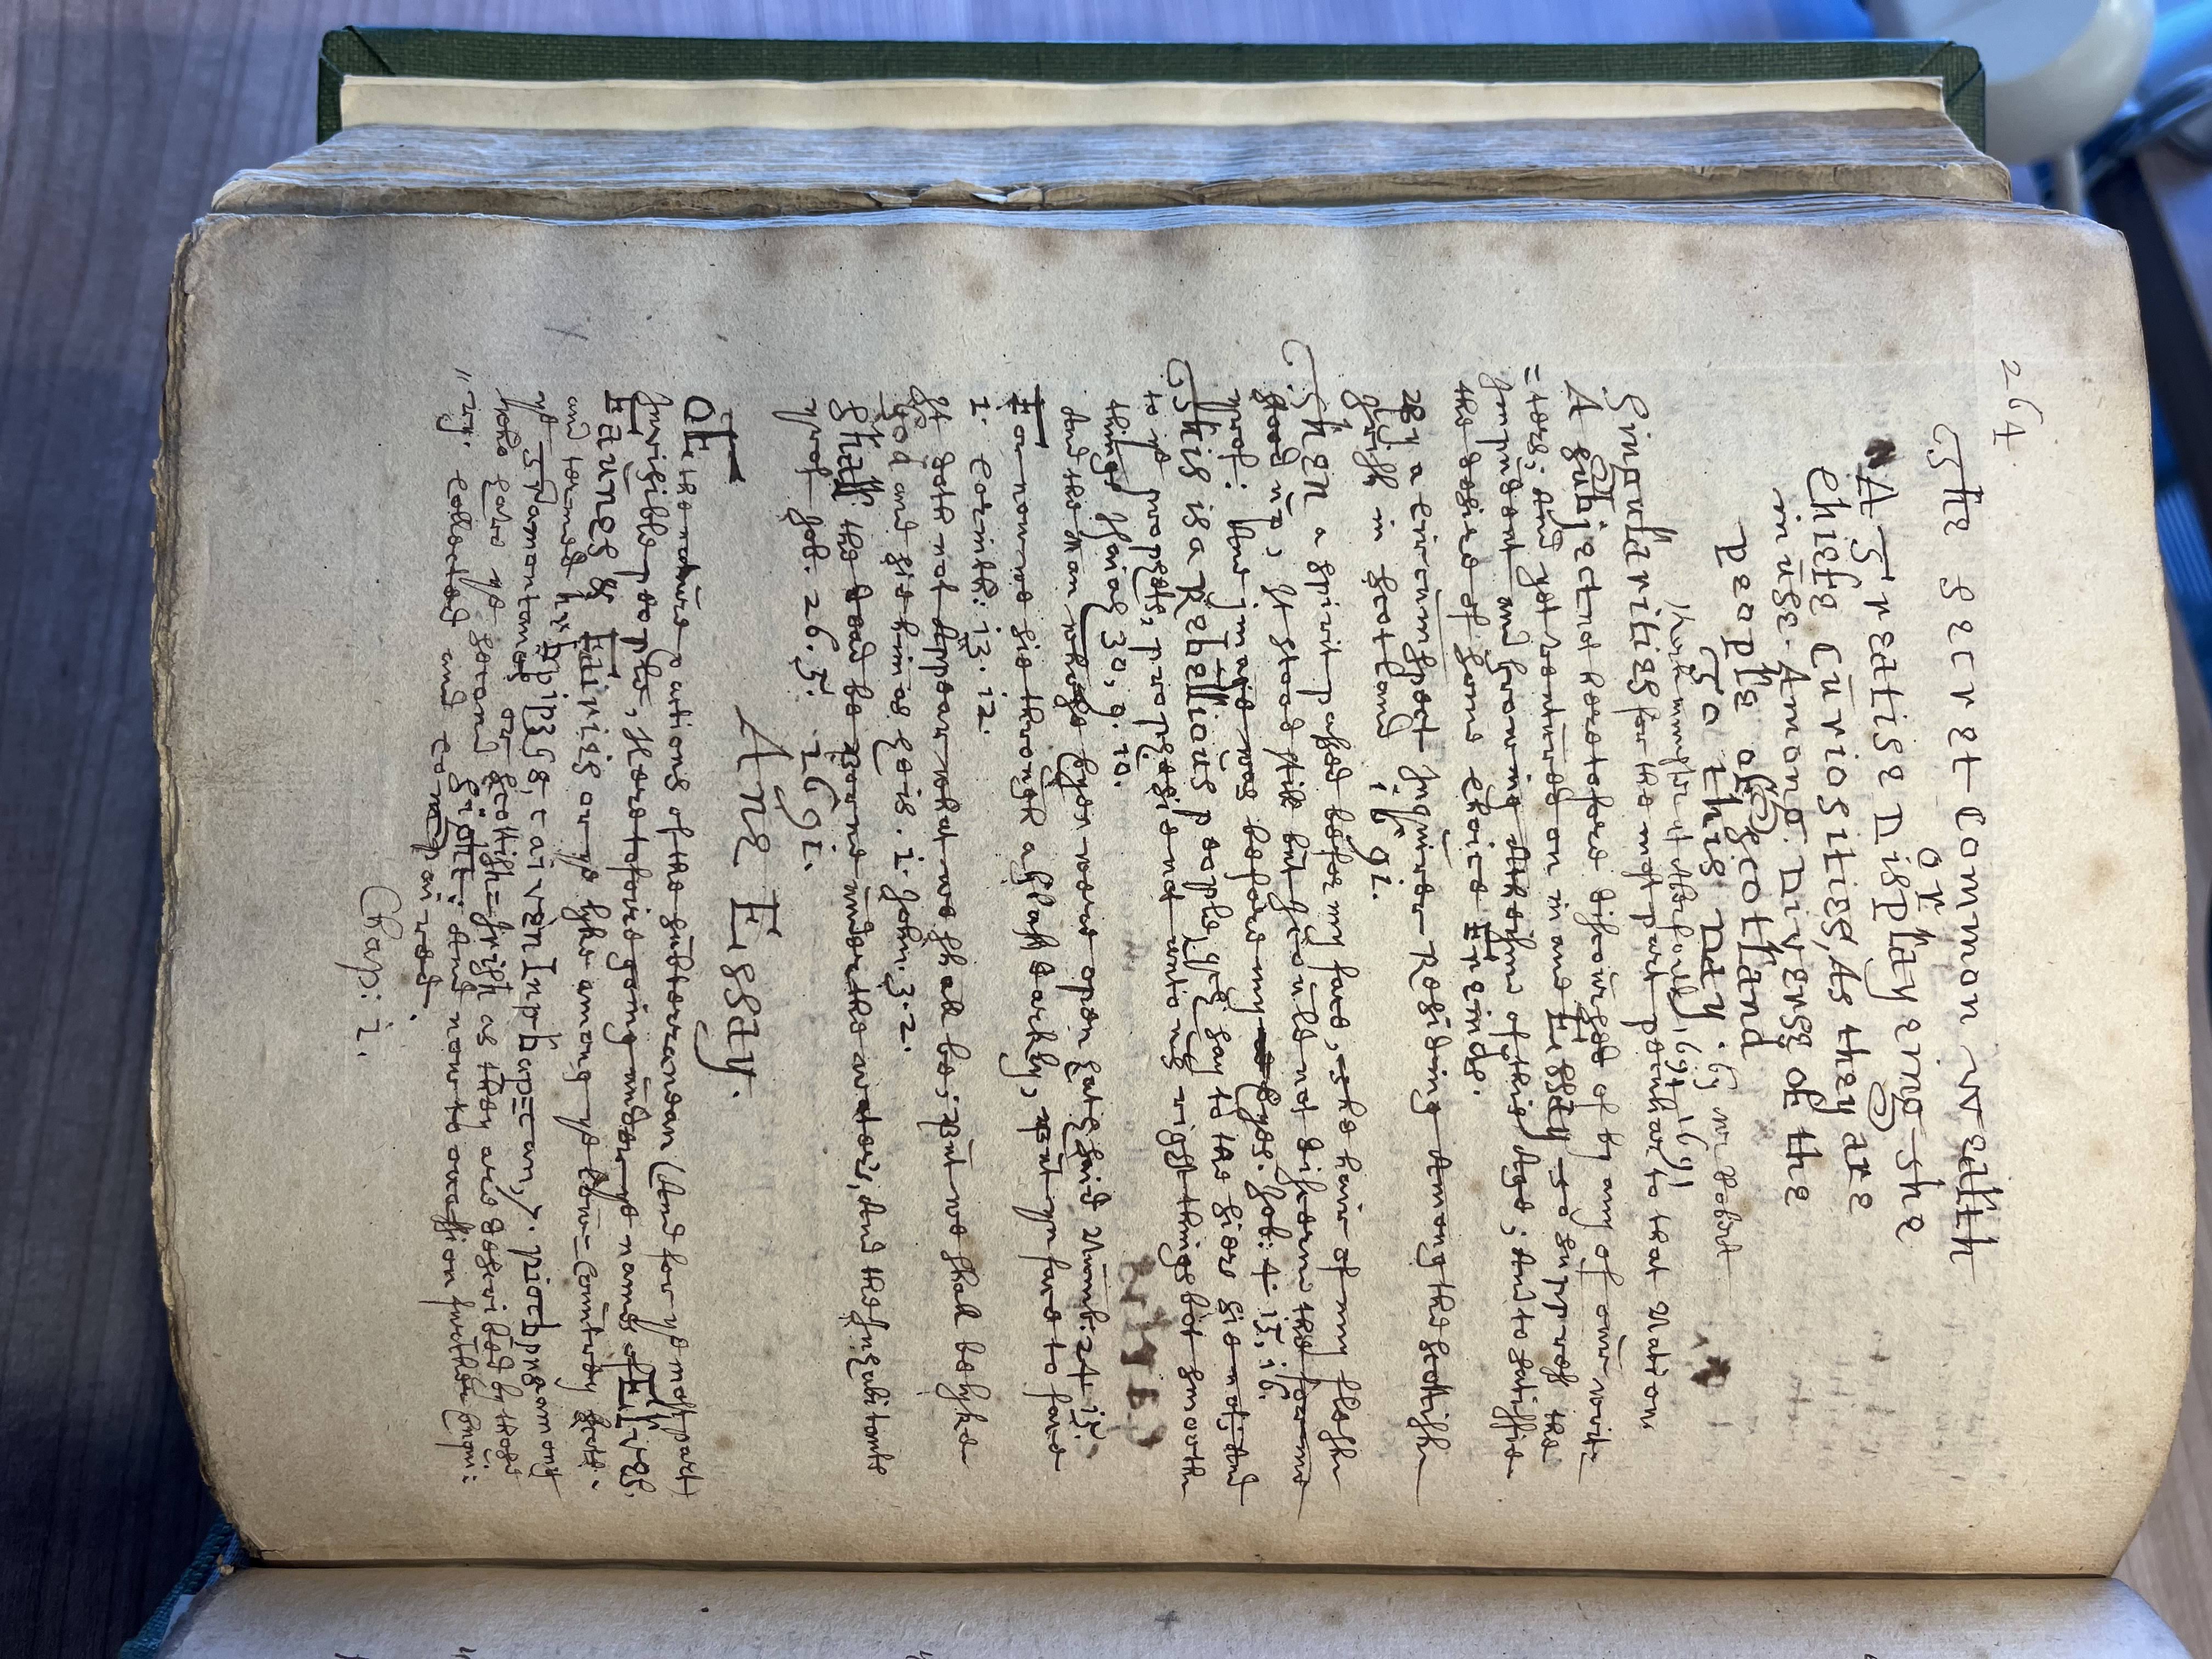 264.
The secret common wealth
Or
A Treatise Displayeing the
Chiefe Curiosities, As they are
in use Among Diverss of the
People of Scotland
To this Day;
Singularities for the most part peculiar to that Nation
A subject not heretofore discoursed of by any of our writ=
=ters; And yet ventured on in ane Essay to suppress the
impudent and growing Atheism of this Age; And to satisfie
the desire of some choice Freinds.
By a circumspect Inquirer Residing Among the Scottish
Irish in Scotland
Then a spirit passed before my face, the hair of my flesh
stood up; It stood still but I could not discern the forme
yrof: Ane image was before my Eyes. Job: 4: 15, 16.
This is a Rebellious people, qch say to the siers sie not, And
to ye prophets, prophesie not unto us right things bot smooth
things. Isaiah 30, 9. 10.
And the man whose Eyes were open hath said Numb: 24: 15.
For now we sie through a glass darkly, But yn face to face
1: corinth: 13. 12.
It doth not Appear what we shall be; But we shal be lyke
God and sie him as he is. 1. John: 3. 2.
Shall the dead be formed under the waters, And the Inhabitants
yrof Job. 26. 5. 1691.
Ane Essay.
OF the nature & actions of the subterranean (And for ye most part)
Invisible people, Heretofore going under ye name of Elves,
Faunes & Fairies or ye lyke among ye Low=Country scots.
as they are described by those
who have ye second sight: And now to occasion further Enqui:
=ry: collected and compaired.
Chap: 1.